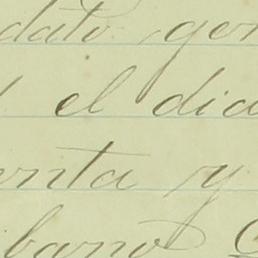 dato gen
el dia
enta y
bano